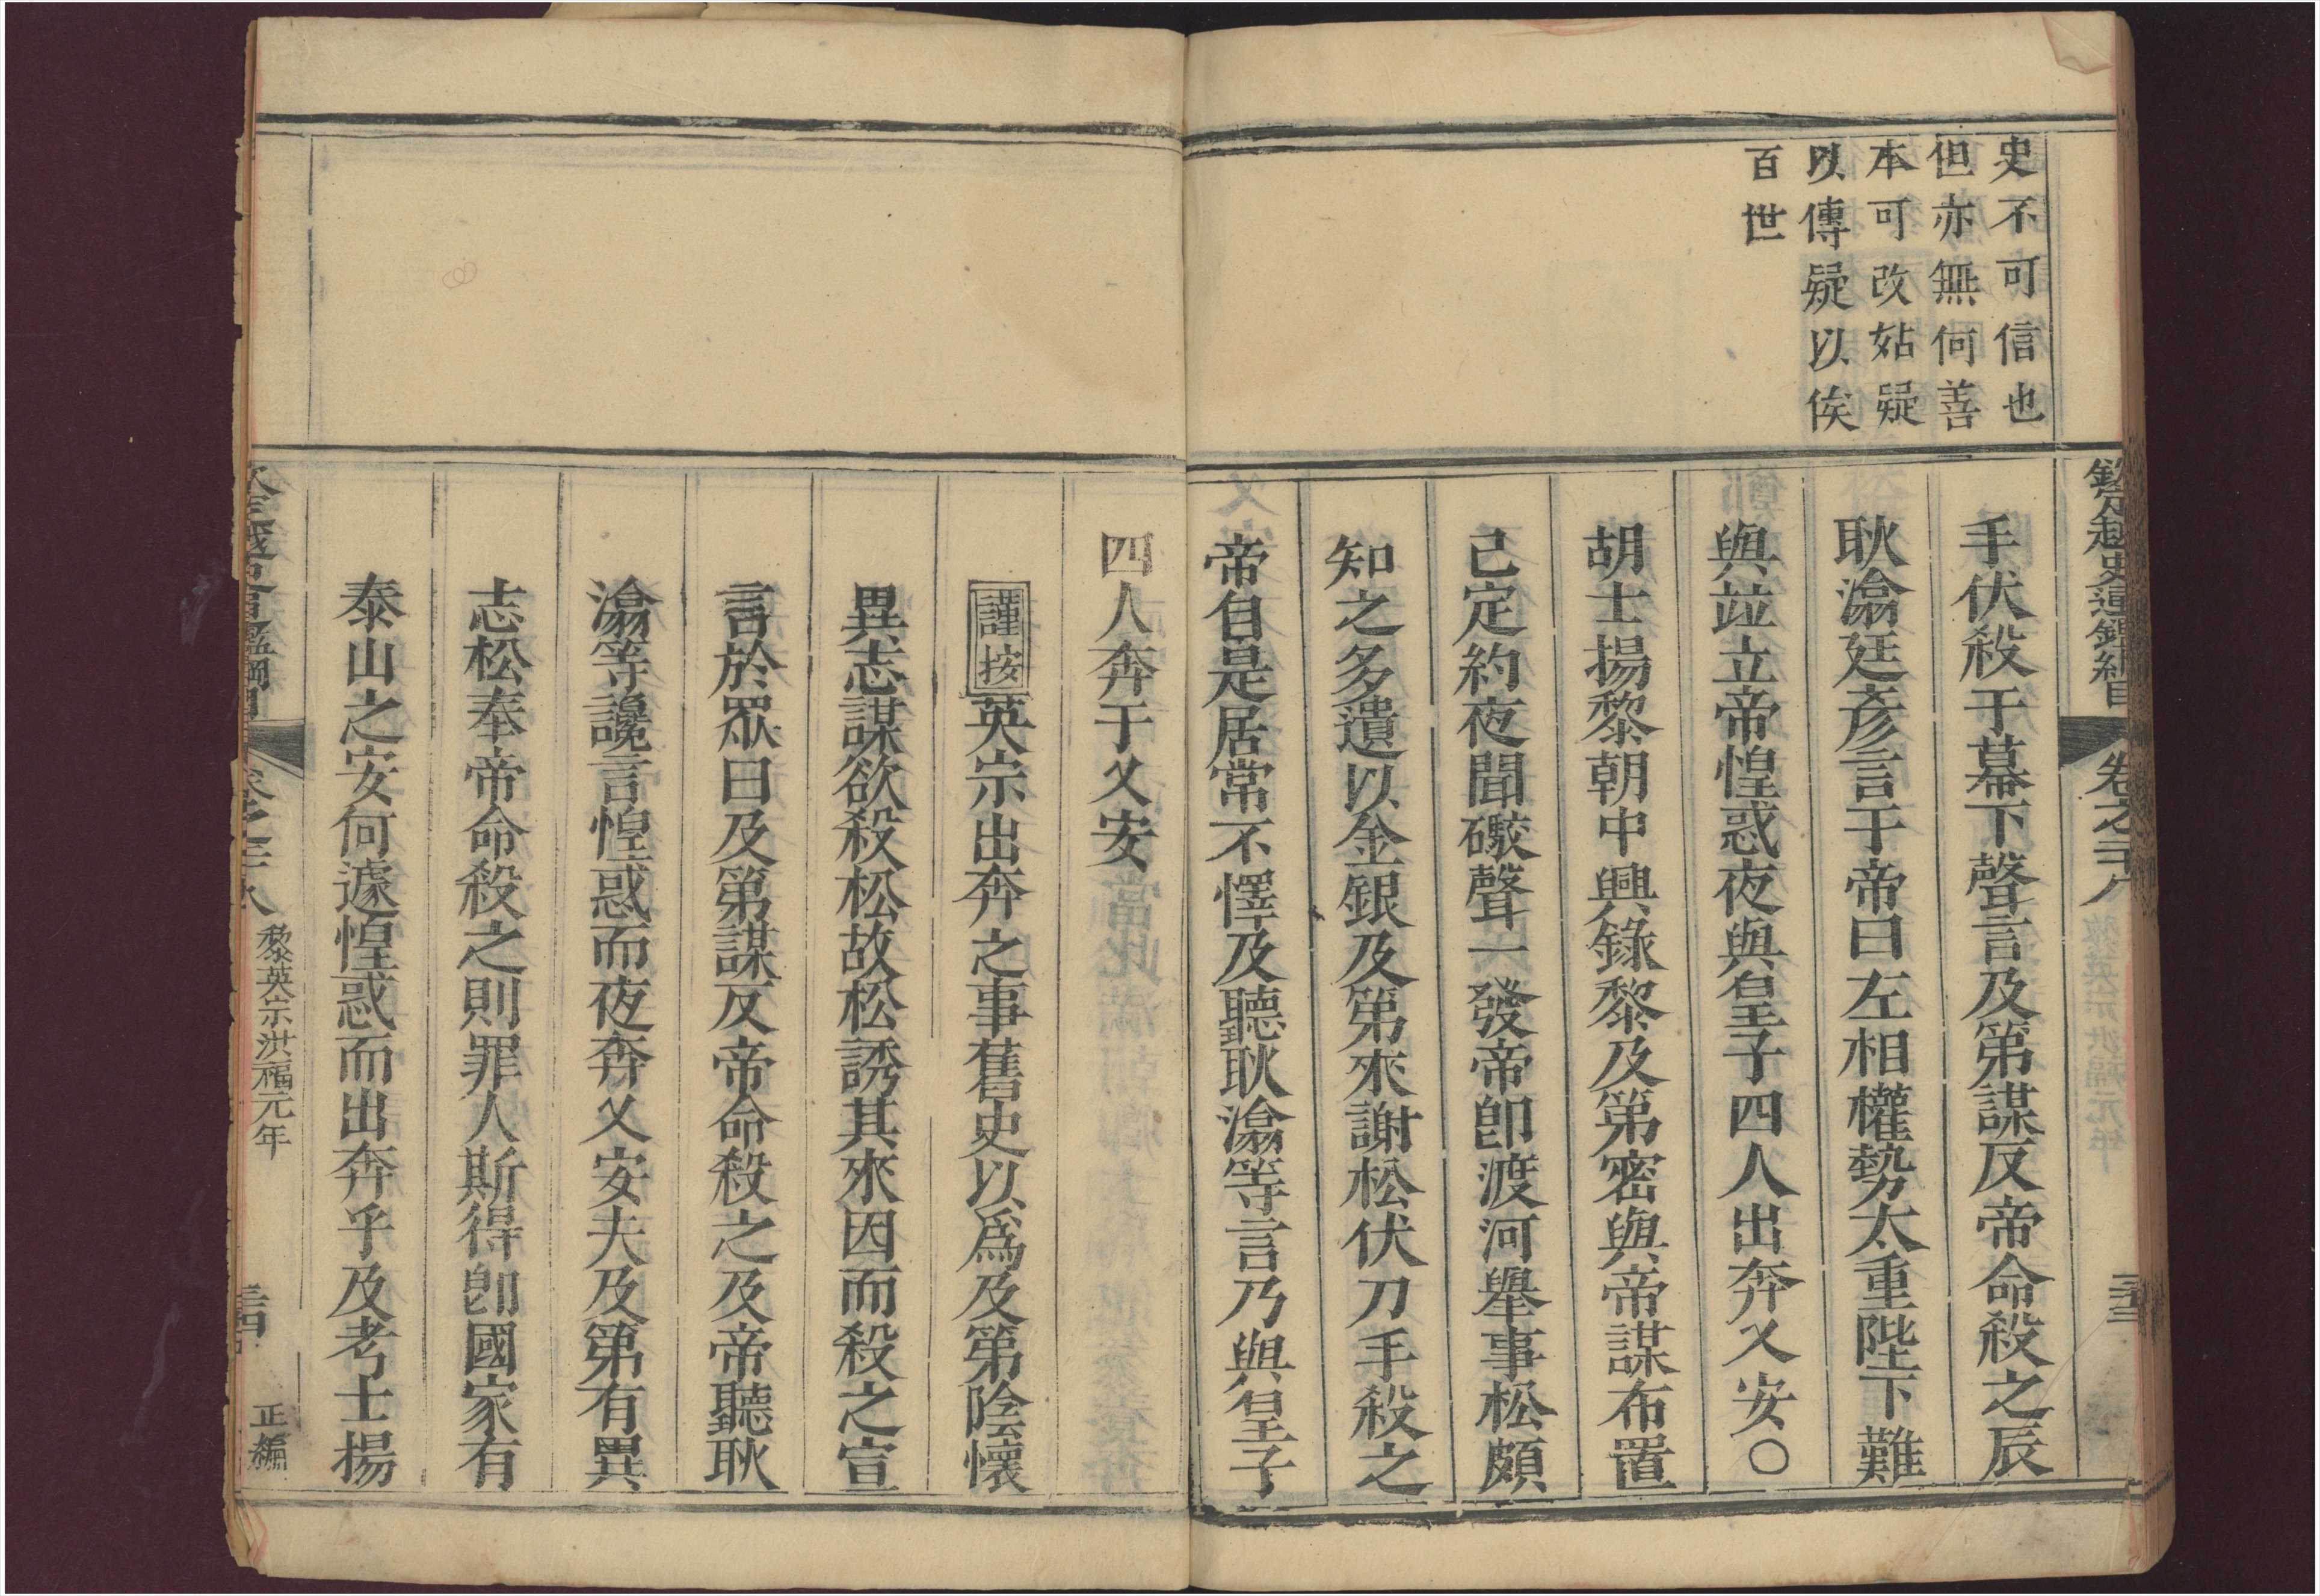 欽定越史通鑑綱目
卷之二十八
三十三
史不可信也
但亦無何善
本可改姑疑
以傳疑以俟
百世
手伏殺于幕下聲言及第謀反帝命殺之辰
耿滃廷彥言于帝曰左相權勢太重陛下難
與竝立帝惶惑夜與皇子四人出奔乂安〇
胡士揚黎朝中興錄黎及第密與帝謀布置
已定約夜聞礮聲一發帝卽渡河舉事松頗
知之多遺以金銀及第來謝松伏刀手殺之
帝自是居常不懌及聽耿滃等言乃與皇子
四人奔于乂安
謹按英宗出奔之事舊史以爲及第陰懷
異志謀欲殺松故松誘其來因而殺之宣
言於眾曰及第謀反帝命殺之及帝聽耿
滃等讒言惶惑而夜奔乂安夫及第有異
志松奉帝命殺之則罪人斯得卽國家有
泰山之安何遽惶惑而出奔乎及考士揚
黎英宗洪福元年
正編